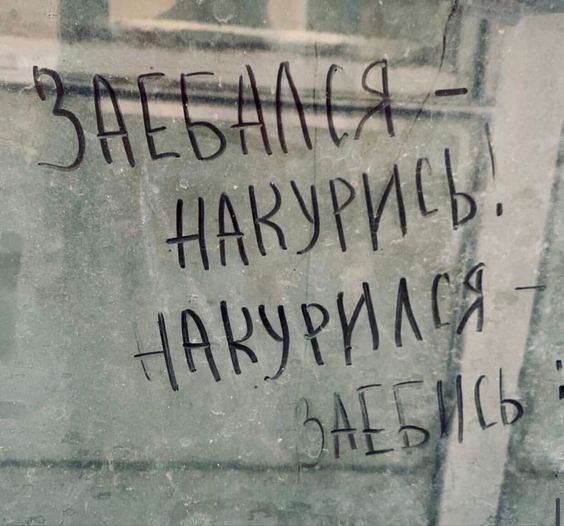 ЗАЕБАЛСЯ -
НАКУРИСЬ!
НАКУРИЛСЯ -
ЗАЕБИСЬ :